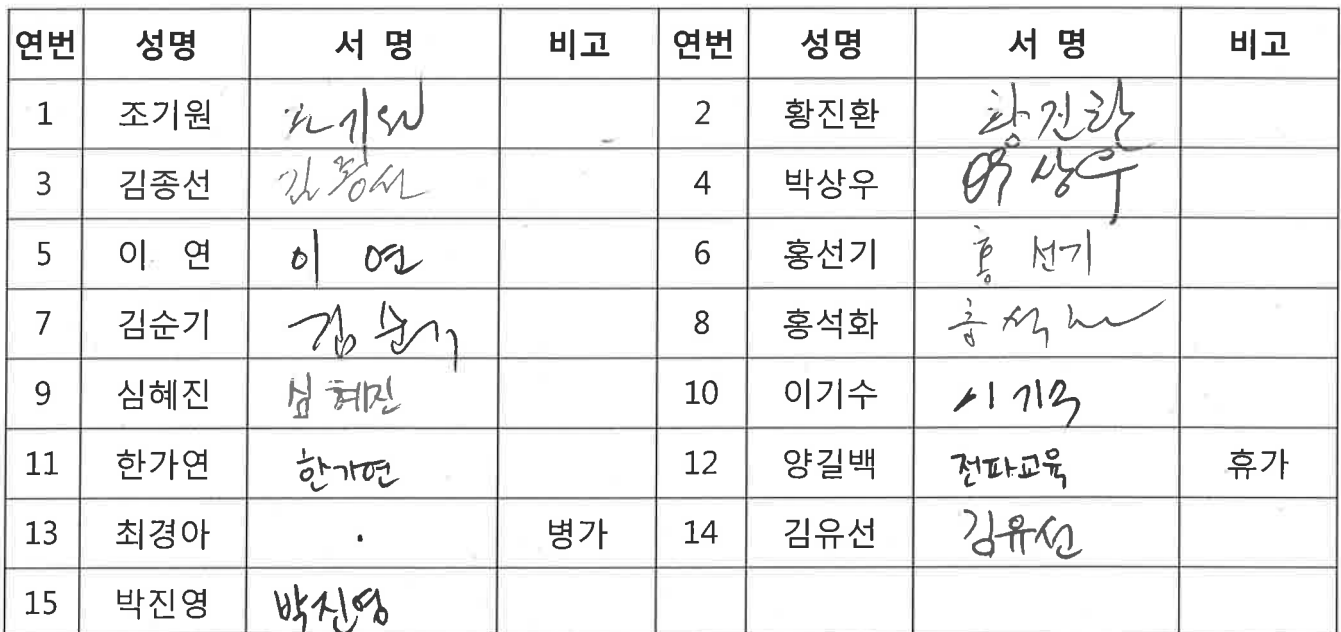 연번 성명 서 명 비고 연번 성명 서 명 비고
1 조기원 조기원 2 황진환 황진환
3 김종선 김종선 4 박상우 박상우
5 이 연 이 연 6 홍선기 홍선기
7 김순기 김순기 8 홍석화 홍석화
9 심혜진 심혜진 10 이기수 이기수
11 한가연 한가연 12 양길백 전파교육 휴가
13 최경아 . 병가 14 김유선 김유선
15 박진영 박진영